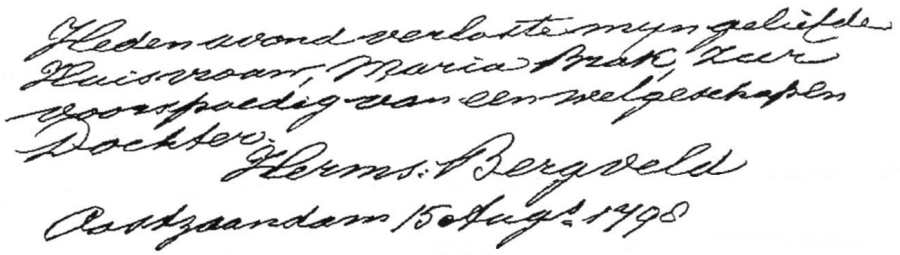 Heden avond verloste myn geliefde
Huisvrouw, Maria Brak, zeer
voorspoedig van een welgeschapen
Dochter.
Herms: Bergveld
Oostzaandam 15 Augs. 1798